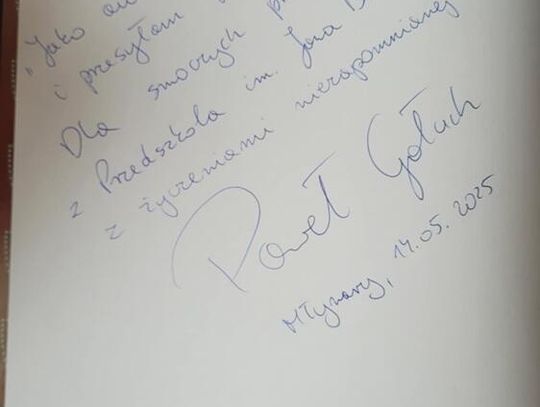 "Jako
i przesyłam
Dla smoczych
z Przedszkola im. Jana
z życzeniami niezapomnianej
Paweł Gołuch
Młynary, 14.05.2025